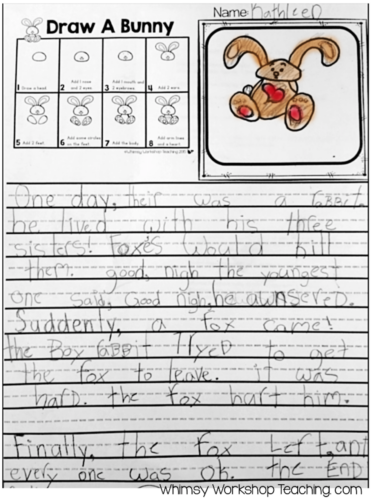 Draw A Bunny
Name: Kathleen
1 Draw a head.
2 Add 1 nose and 2 eyes.
3 Add 1 mouth and 2 eyebrows.
4 Add 2 ears.
5 Add 2 feet.
6 Add some circles on the feet.
7 Add the body.
8 Add arm lines and a heart.
One day, their was a rabbit.
he lived with his three
sisters! Foxes would hill
them. good, nigh the youngest
one said, Good nigh, he awnsered.
Suddenly, a fox came!
the Boy rabbit Tryed to get
the fox to leave. it was
hard. the fox hurt him.
Finally, the fox Left, ant
every one was Oh. the END
Whimsy Workshop Teaching.com